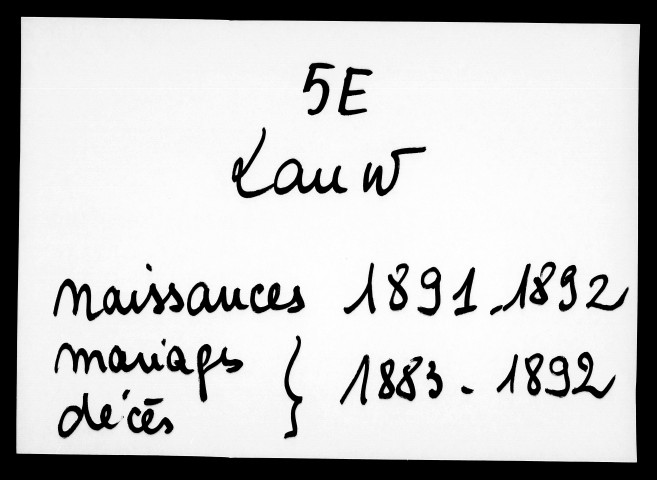 5E
Lauw
naissances 1891-1892
mariages
décès } 1883-1892